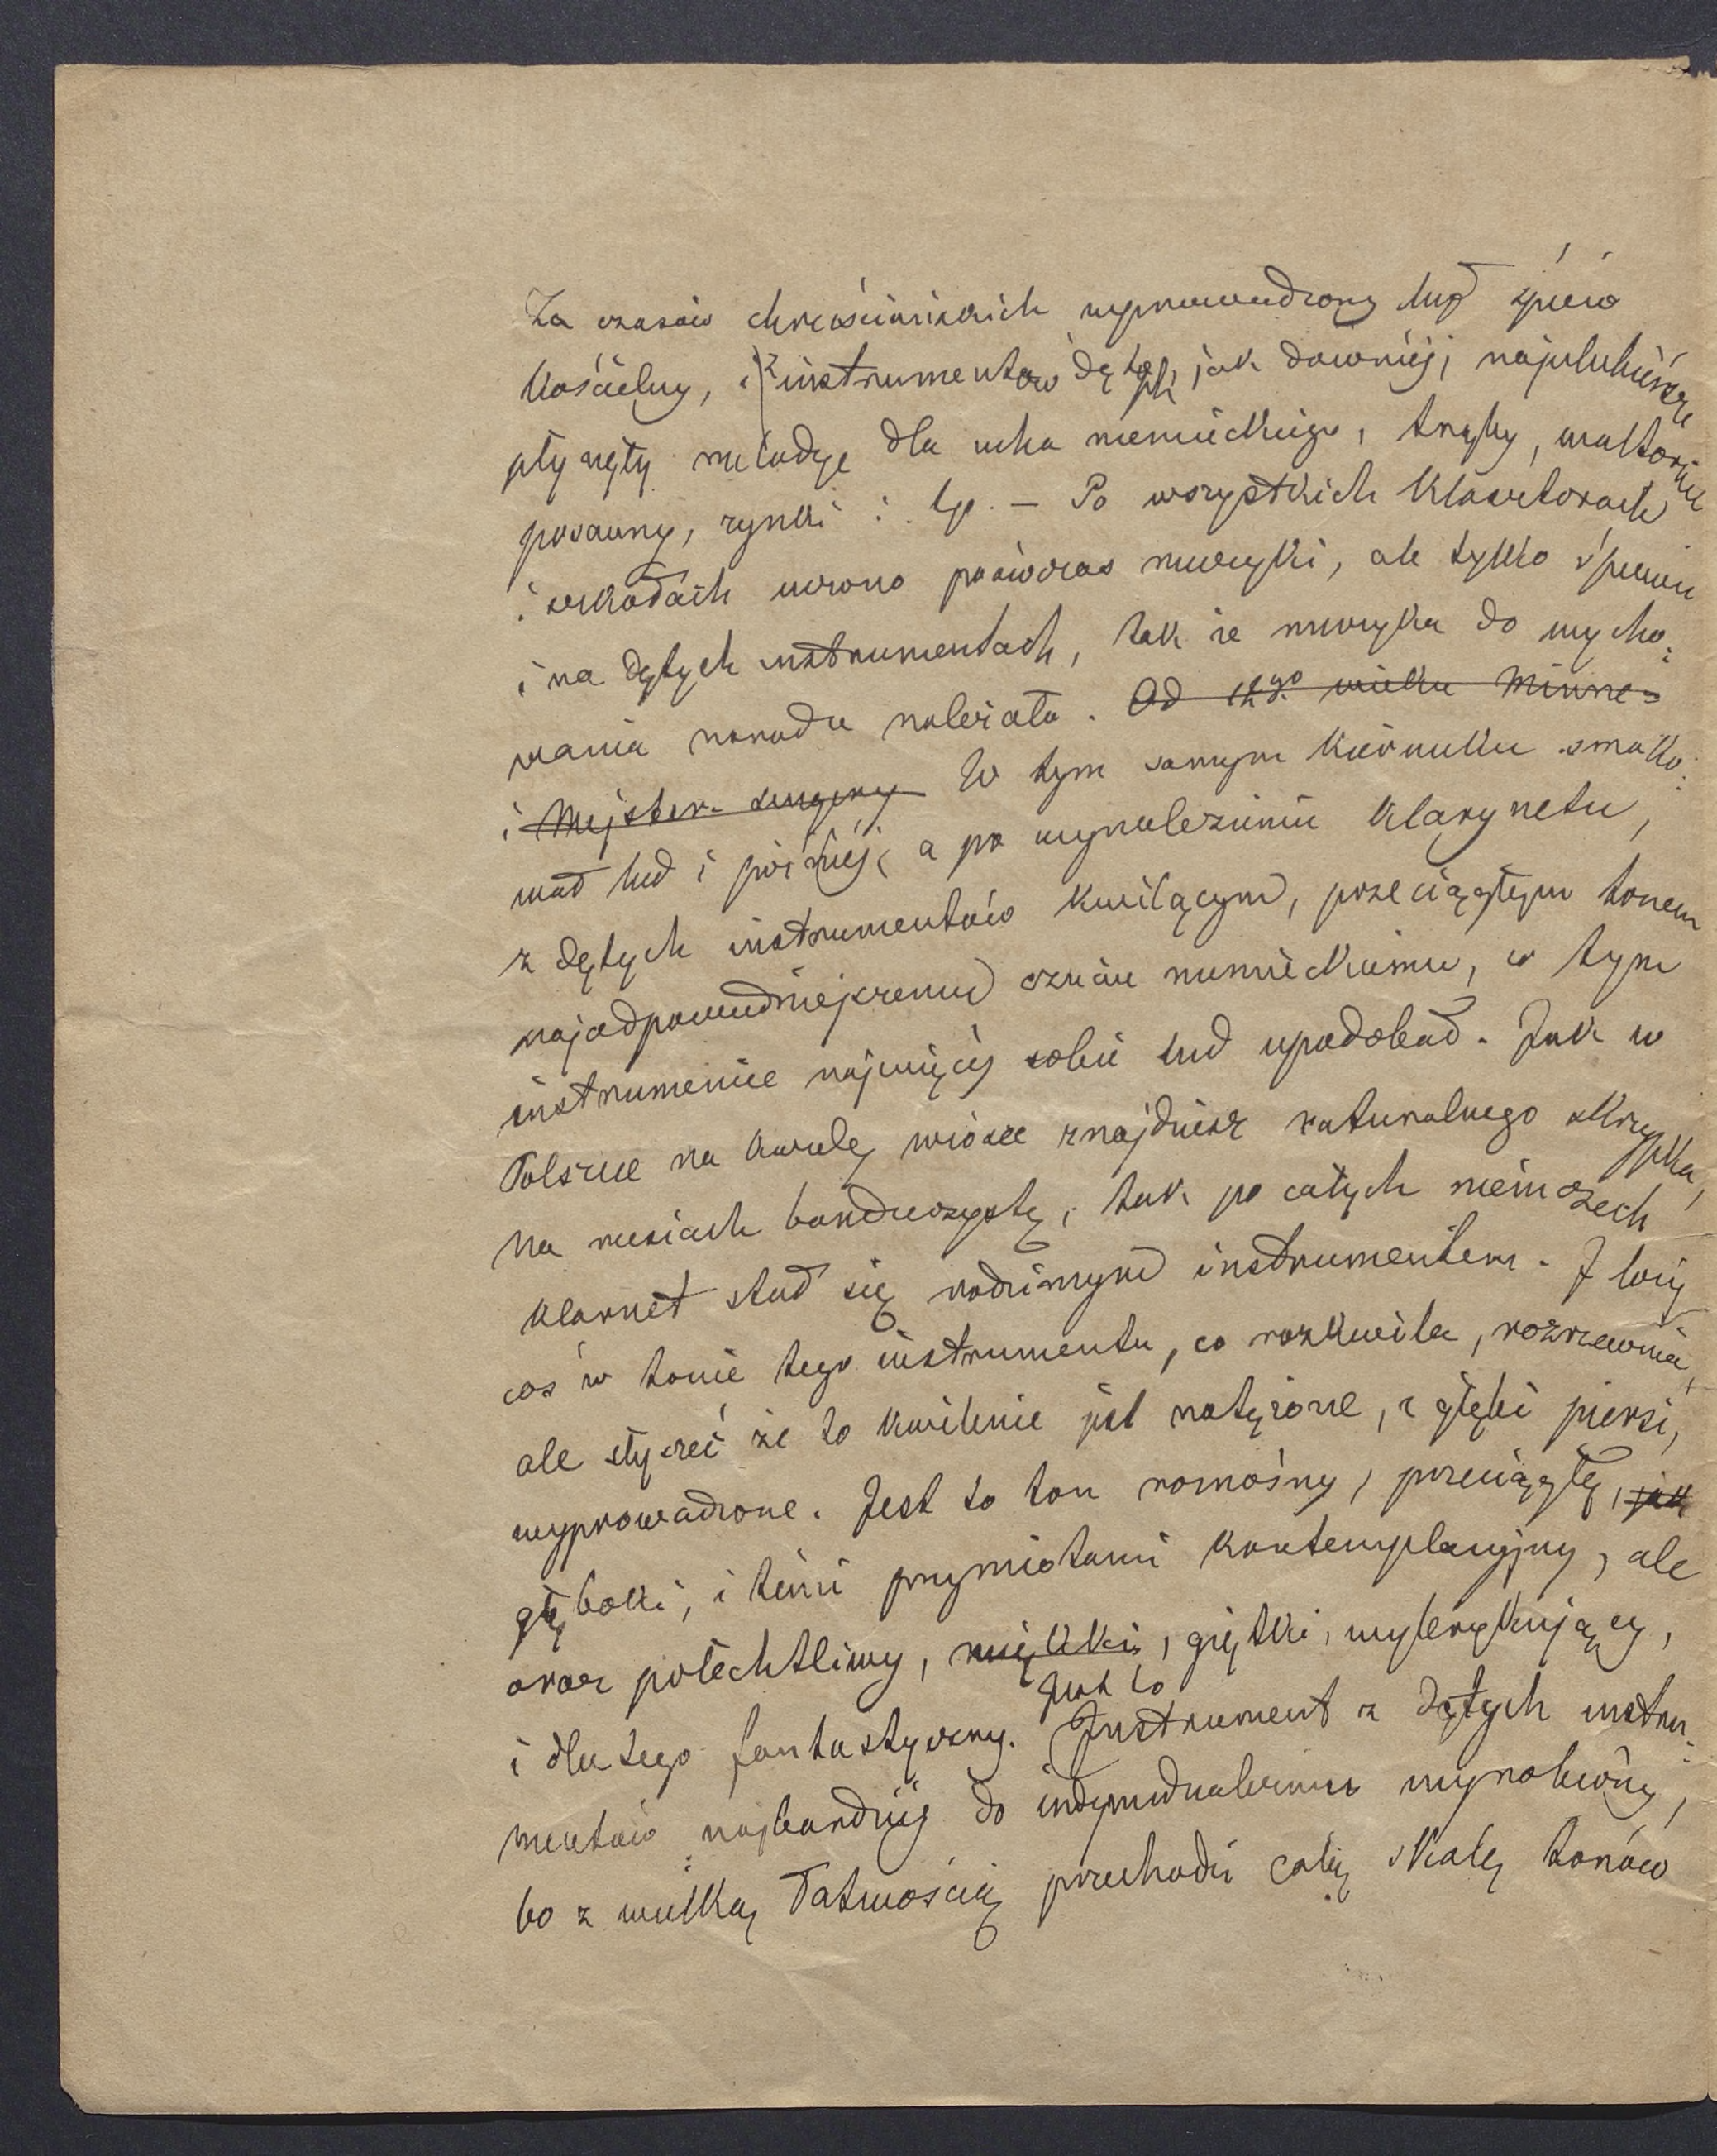 Za czasów chrześciańskich wprowadzony był śpiew
kościelny, i z instrumentów dętych, jak dawniej, najulubieńsze
płynęły melodye dla ucha niemieckiego, trąby, waltornie
posauny, zynki i. t.p. – Po wszystkich klasztorach
i szkołach uczono podówczas muzyki, ale tylko śpiewu
i na dętych instrumentach, tak że muzyka do wycho:
wania narodu należała. Od 12go wieku Minne=
i Mejster-sengery W tym samym kierunku smako:
wał lud i później, a po wynalezieniu klarynetu,
z dętych instrumentów kwilącym, przeciągłym tonem
najodpowiedniejszemu czuciu niemieckiemu, w tym
instrumencie najwięcej sobie lud upodobał. Jak w
Polsce na każdej wiosce znajdziesz naturalnego skrzypka,
na rusiach bandurzystę, tak po całych niemczech
klarnet stał się rodzimym instrumentem. I leży
coś w tonie tego instrumentu, co rozkwila, rozrzewnia,
ale słyszeć że to kwilenie jest natężone, z głębi piersi,
wyprowadzone. Jest to ton roznośny, przeciągły, jak
głęboki, i temi przymiotami kontemplacyjny, ale
oraz połechtliwy, miękki, giętki, wykrzykujący,
i dla tego fantastyczny. Jest to Instrument z dętych instru:
mentów najbardziej do indywidualizmu wyrobiony,
bo z wielką łatwością przechodzi całą skalę tonów